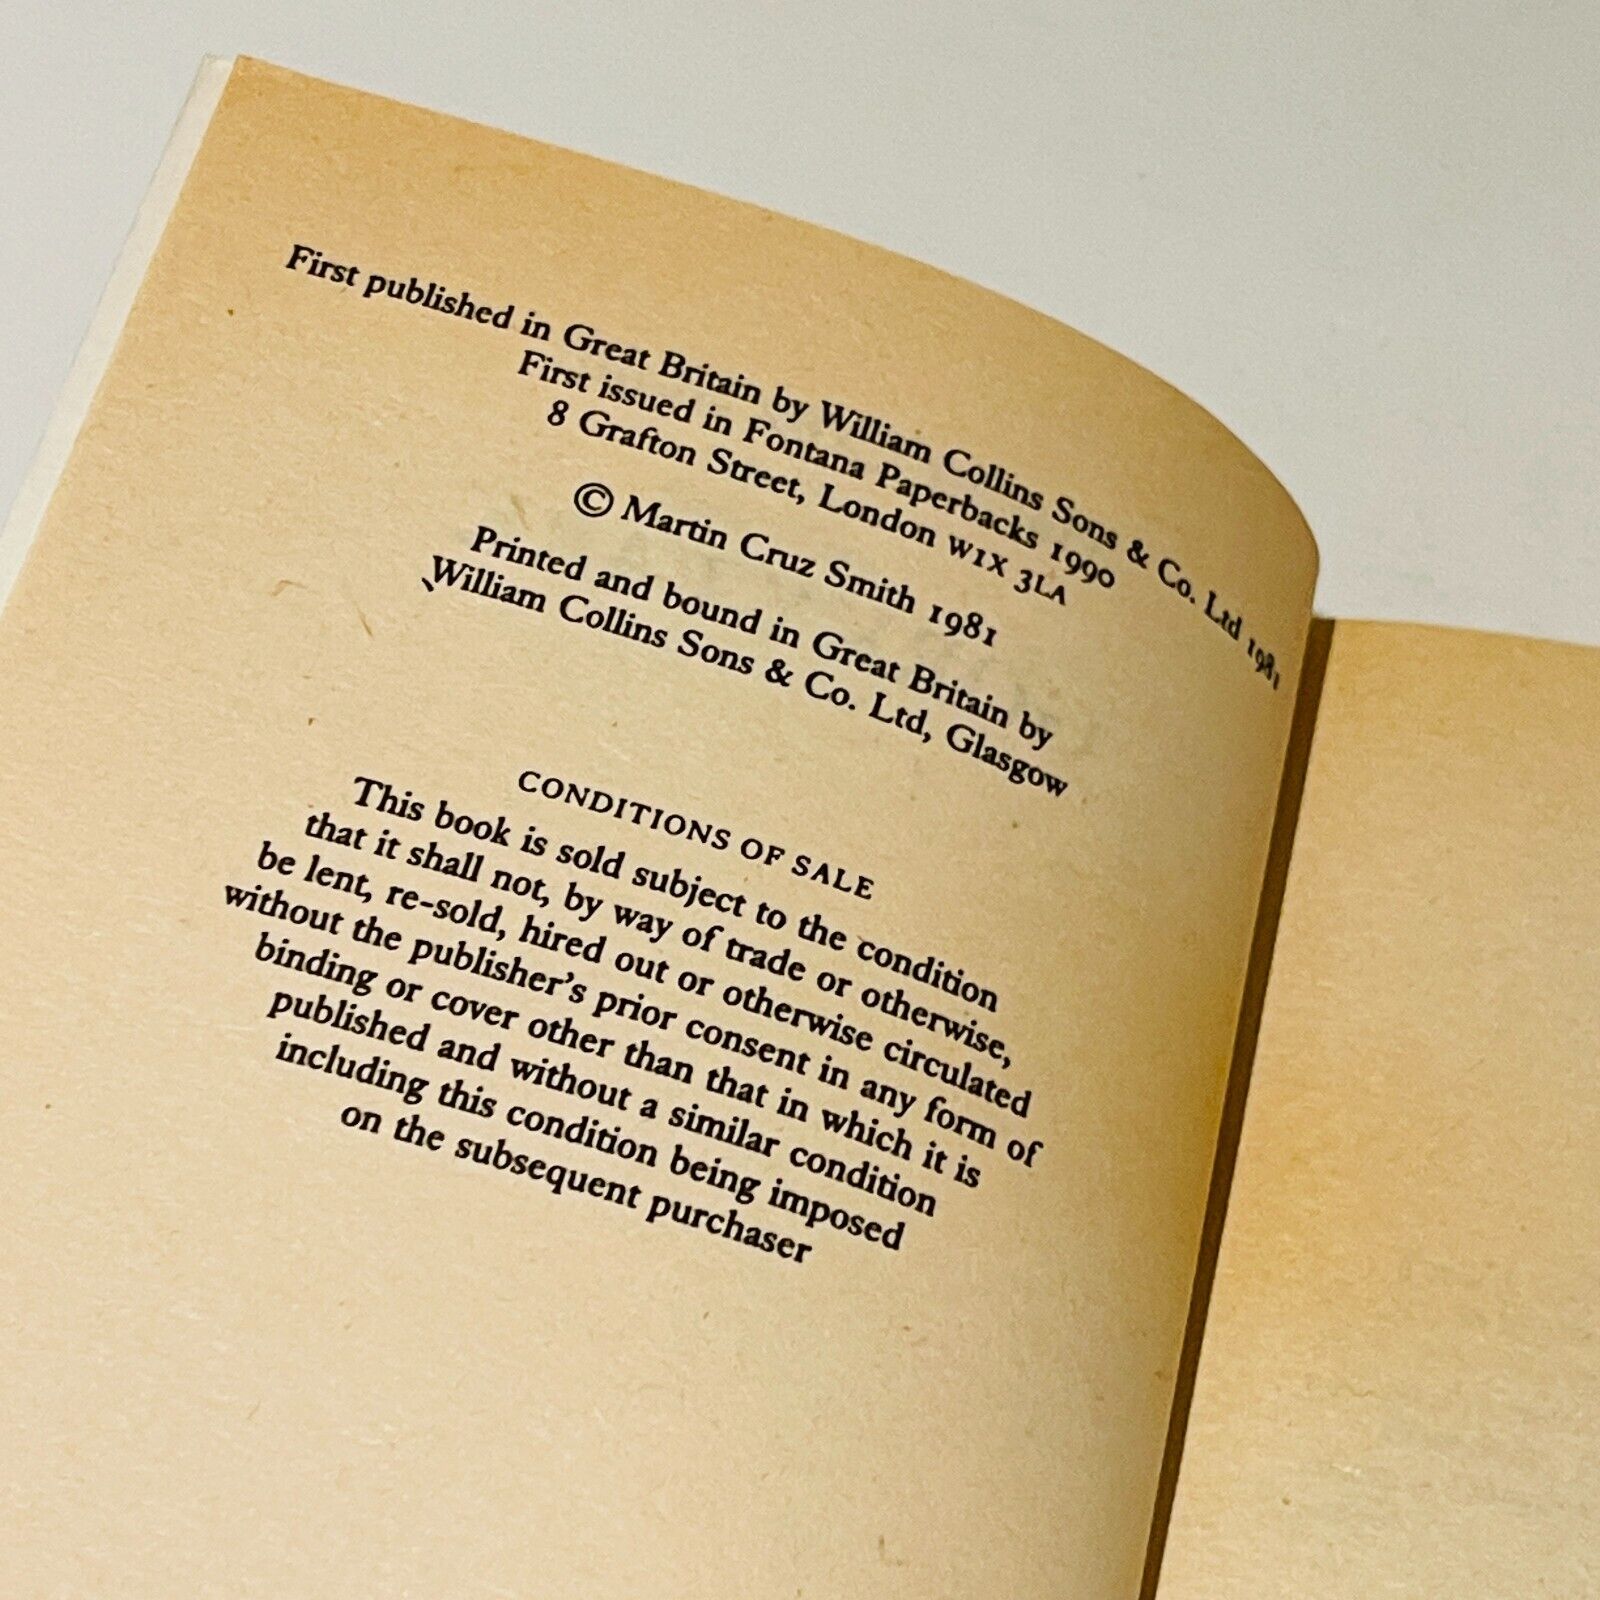 First published in Great Britain by William Collins Sons & Co. Ltd 1981
First issued in Fontana Paperbacks 1990
8 Grafton Street, London W1X 3LA
© Martin Cruz Smith 1981
Printed and bound in Great Britain by
William Collins Sons & Co. Ltd, Glasgow
CONDITIONS OF SALE
This book is sold subject to the condition
that it shall not, by way of trade or otherwise,
be lent, re-sold, hired out or otherwise circulated
without the publisher's prior consent in any form of
binding or cover other than that in which it is
published and without a similar condition
including this condition being imposed
on the subsequent purchaser